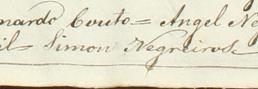 nardo Couto = Angel Ne
il = Simon Negreiros =